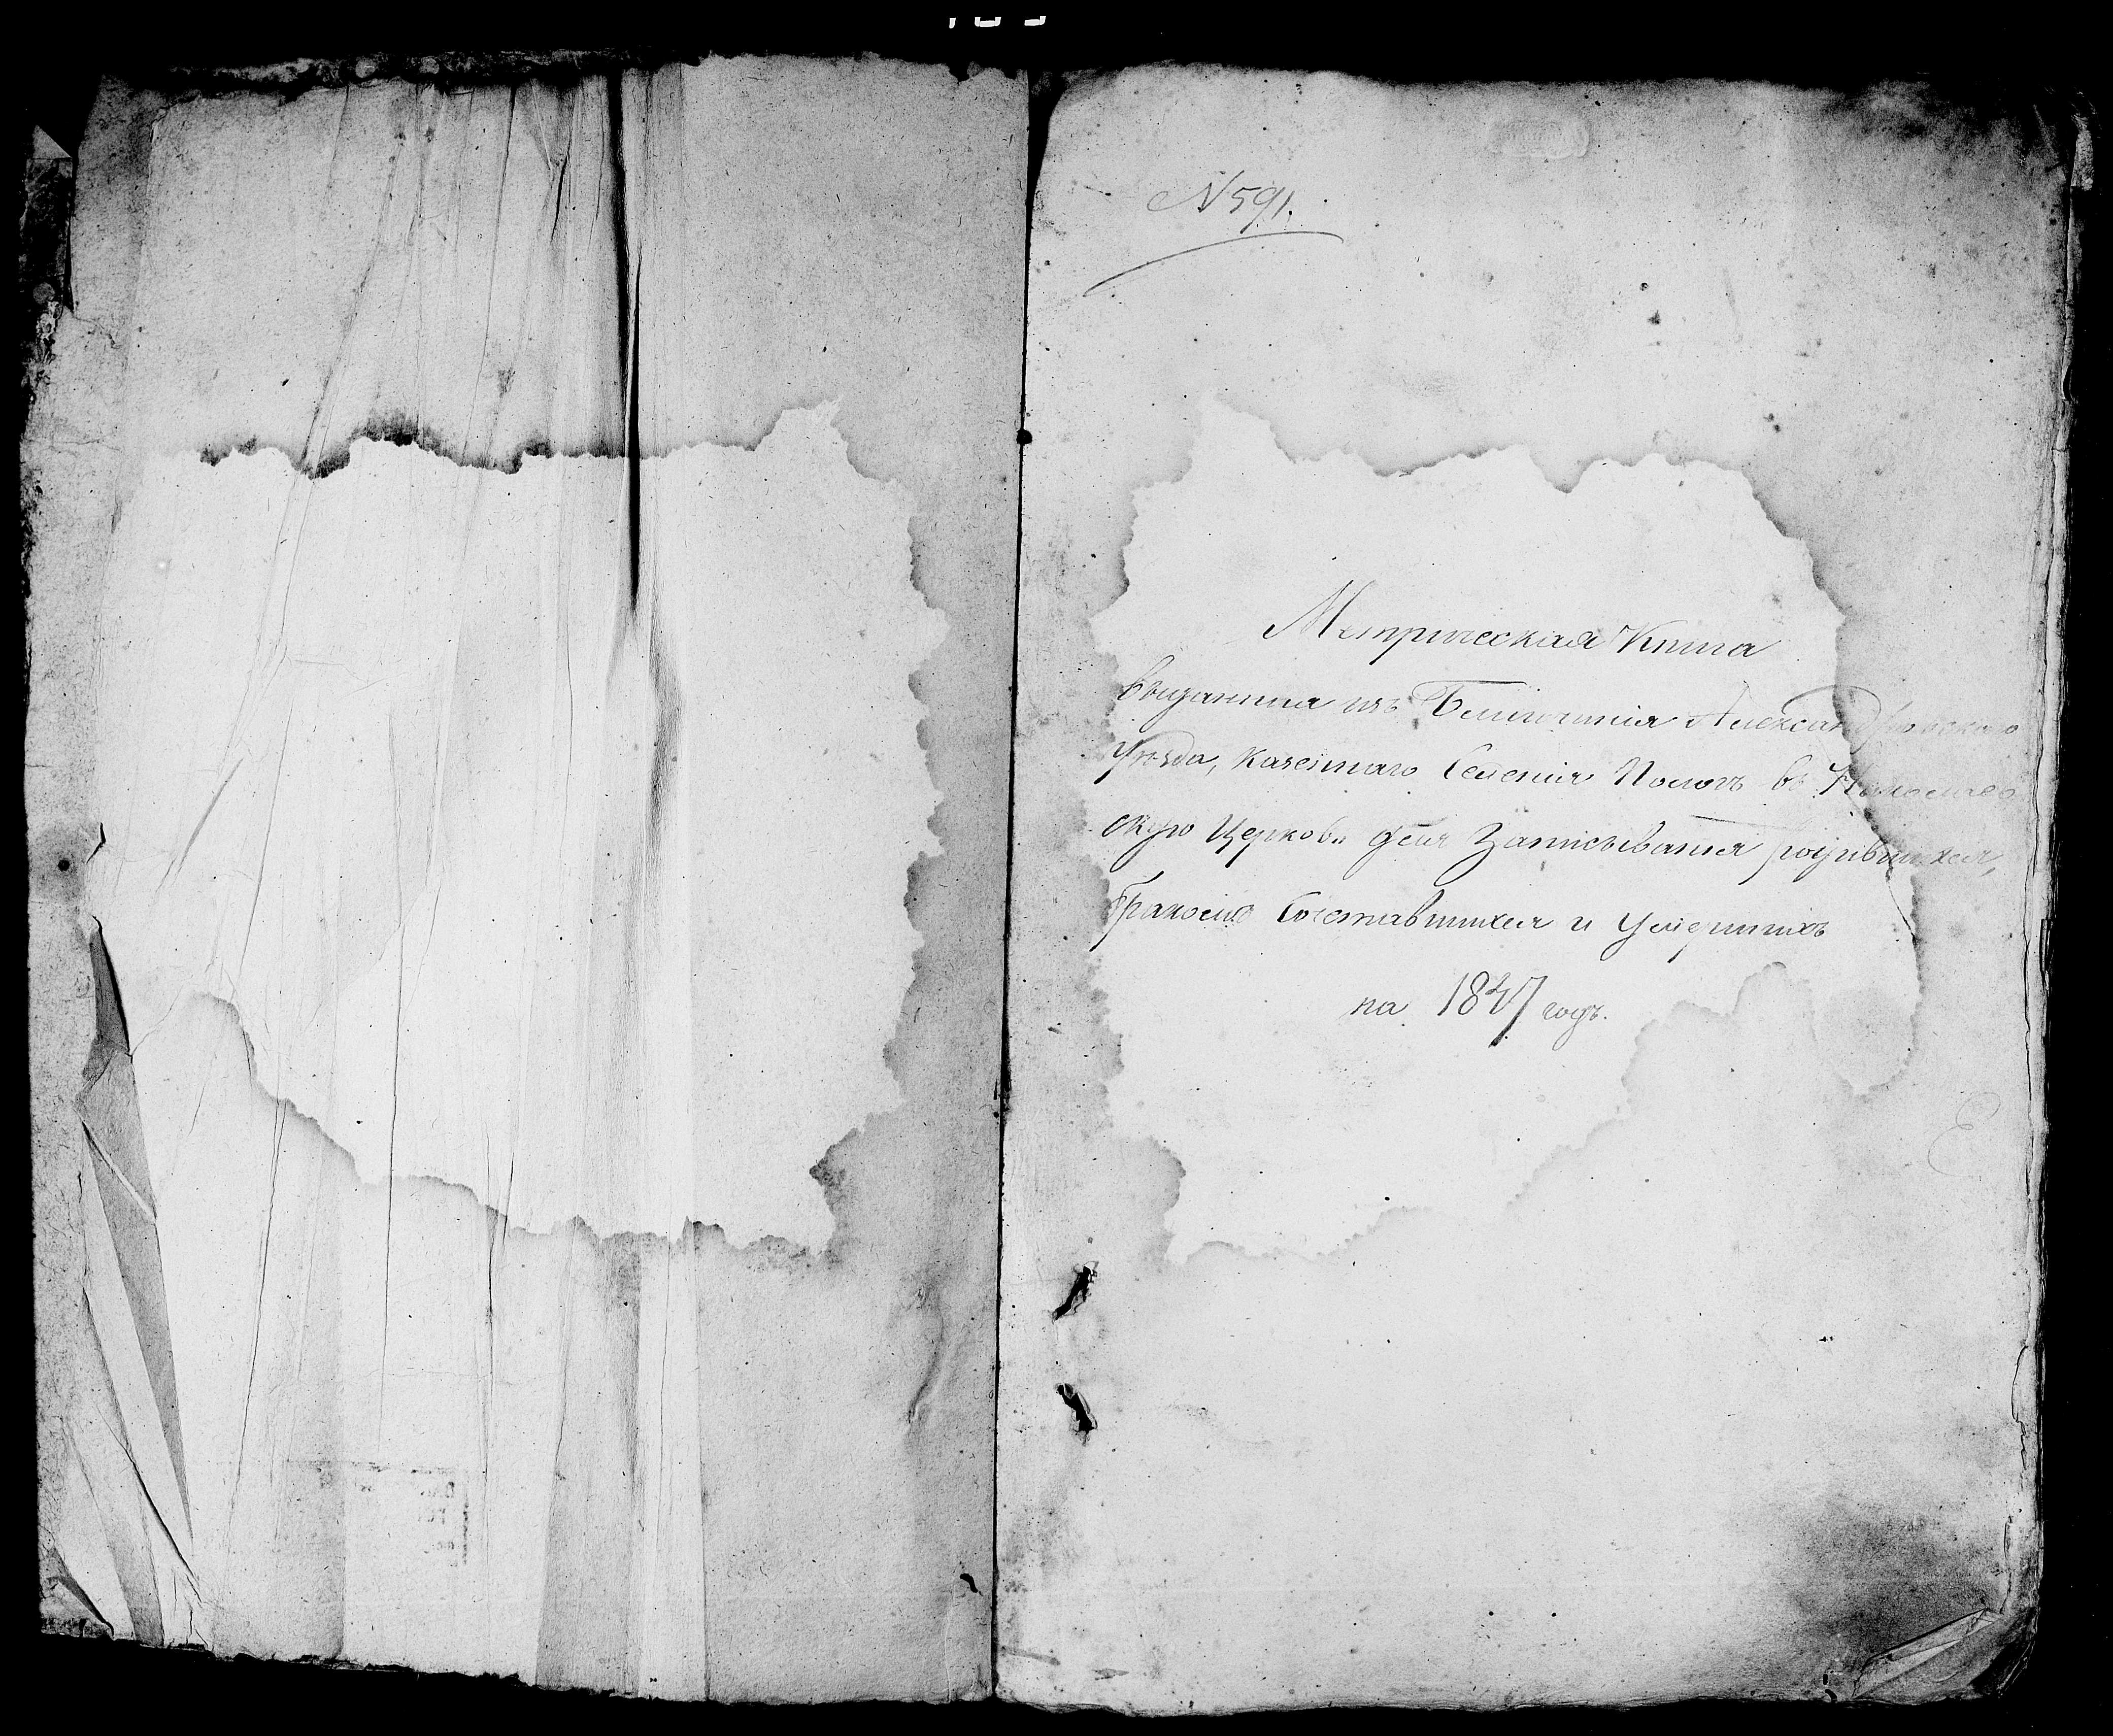 N 591.
Метрическая Книга
выданная изъ Благочинія Александровскаго
Уѣзда, казеннаго Селенія Пологъ въ Николаев
скую Церковь для Записыванія родившихся,
бракомъ Сочетавшихся и Умершихъ
на 1847 годъ.